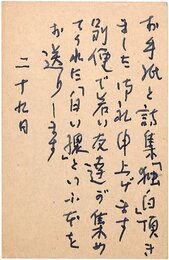 お手紙と詩集「独白」頂き
ました 御礼申上げます
別便で若い友達が集め
てくれた「白い
といふ本を
お送りします
二十九日